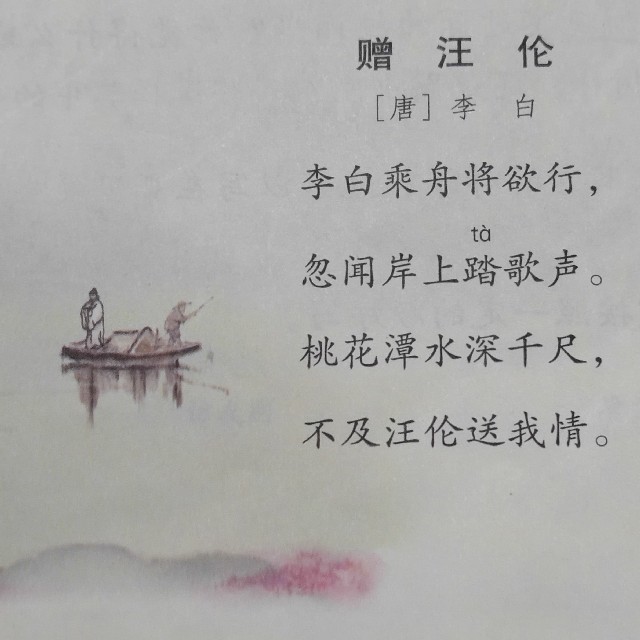 赠 汪 伦
［唐］李 白
李白乘舟将欲行，
tà
忽闻岸上踏歌声。
桃花潭水深千尺，
不及汪伦送我情。